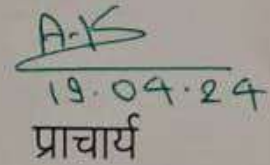 A-K
19.04.24
प्राचार्य